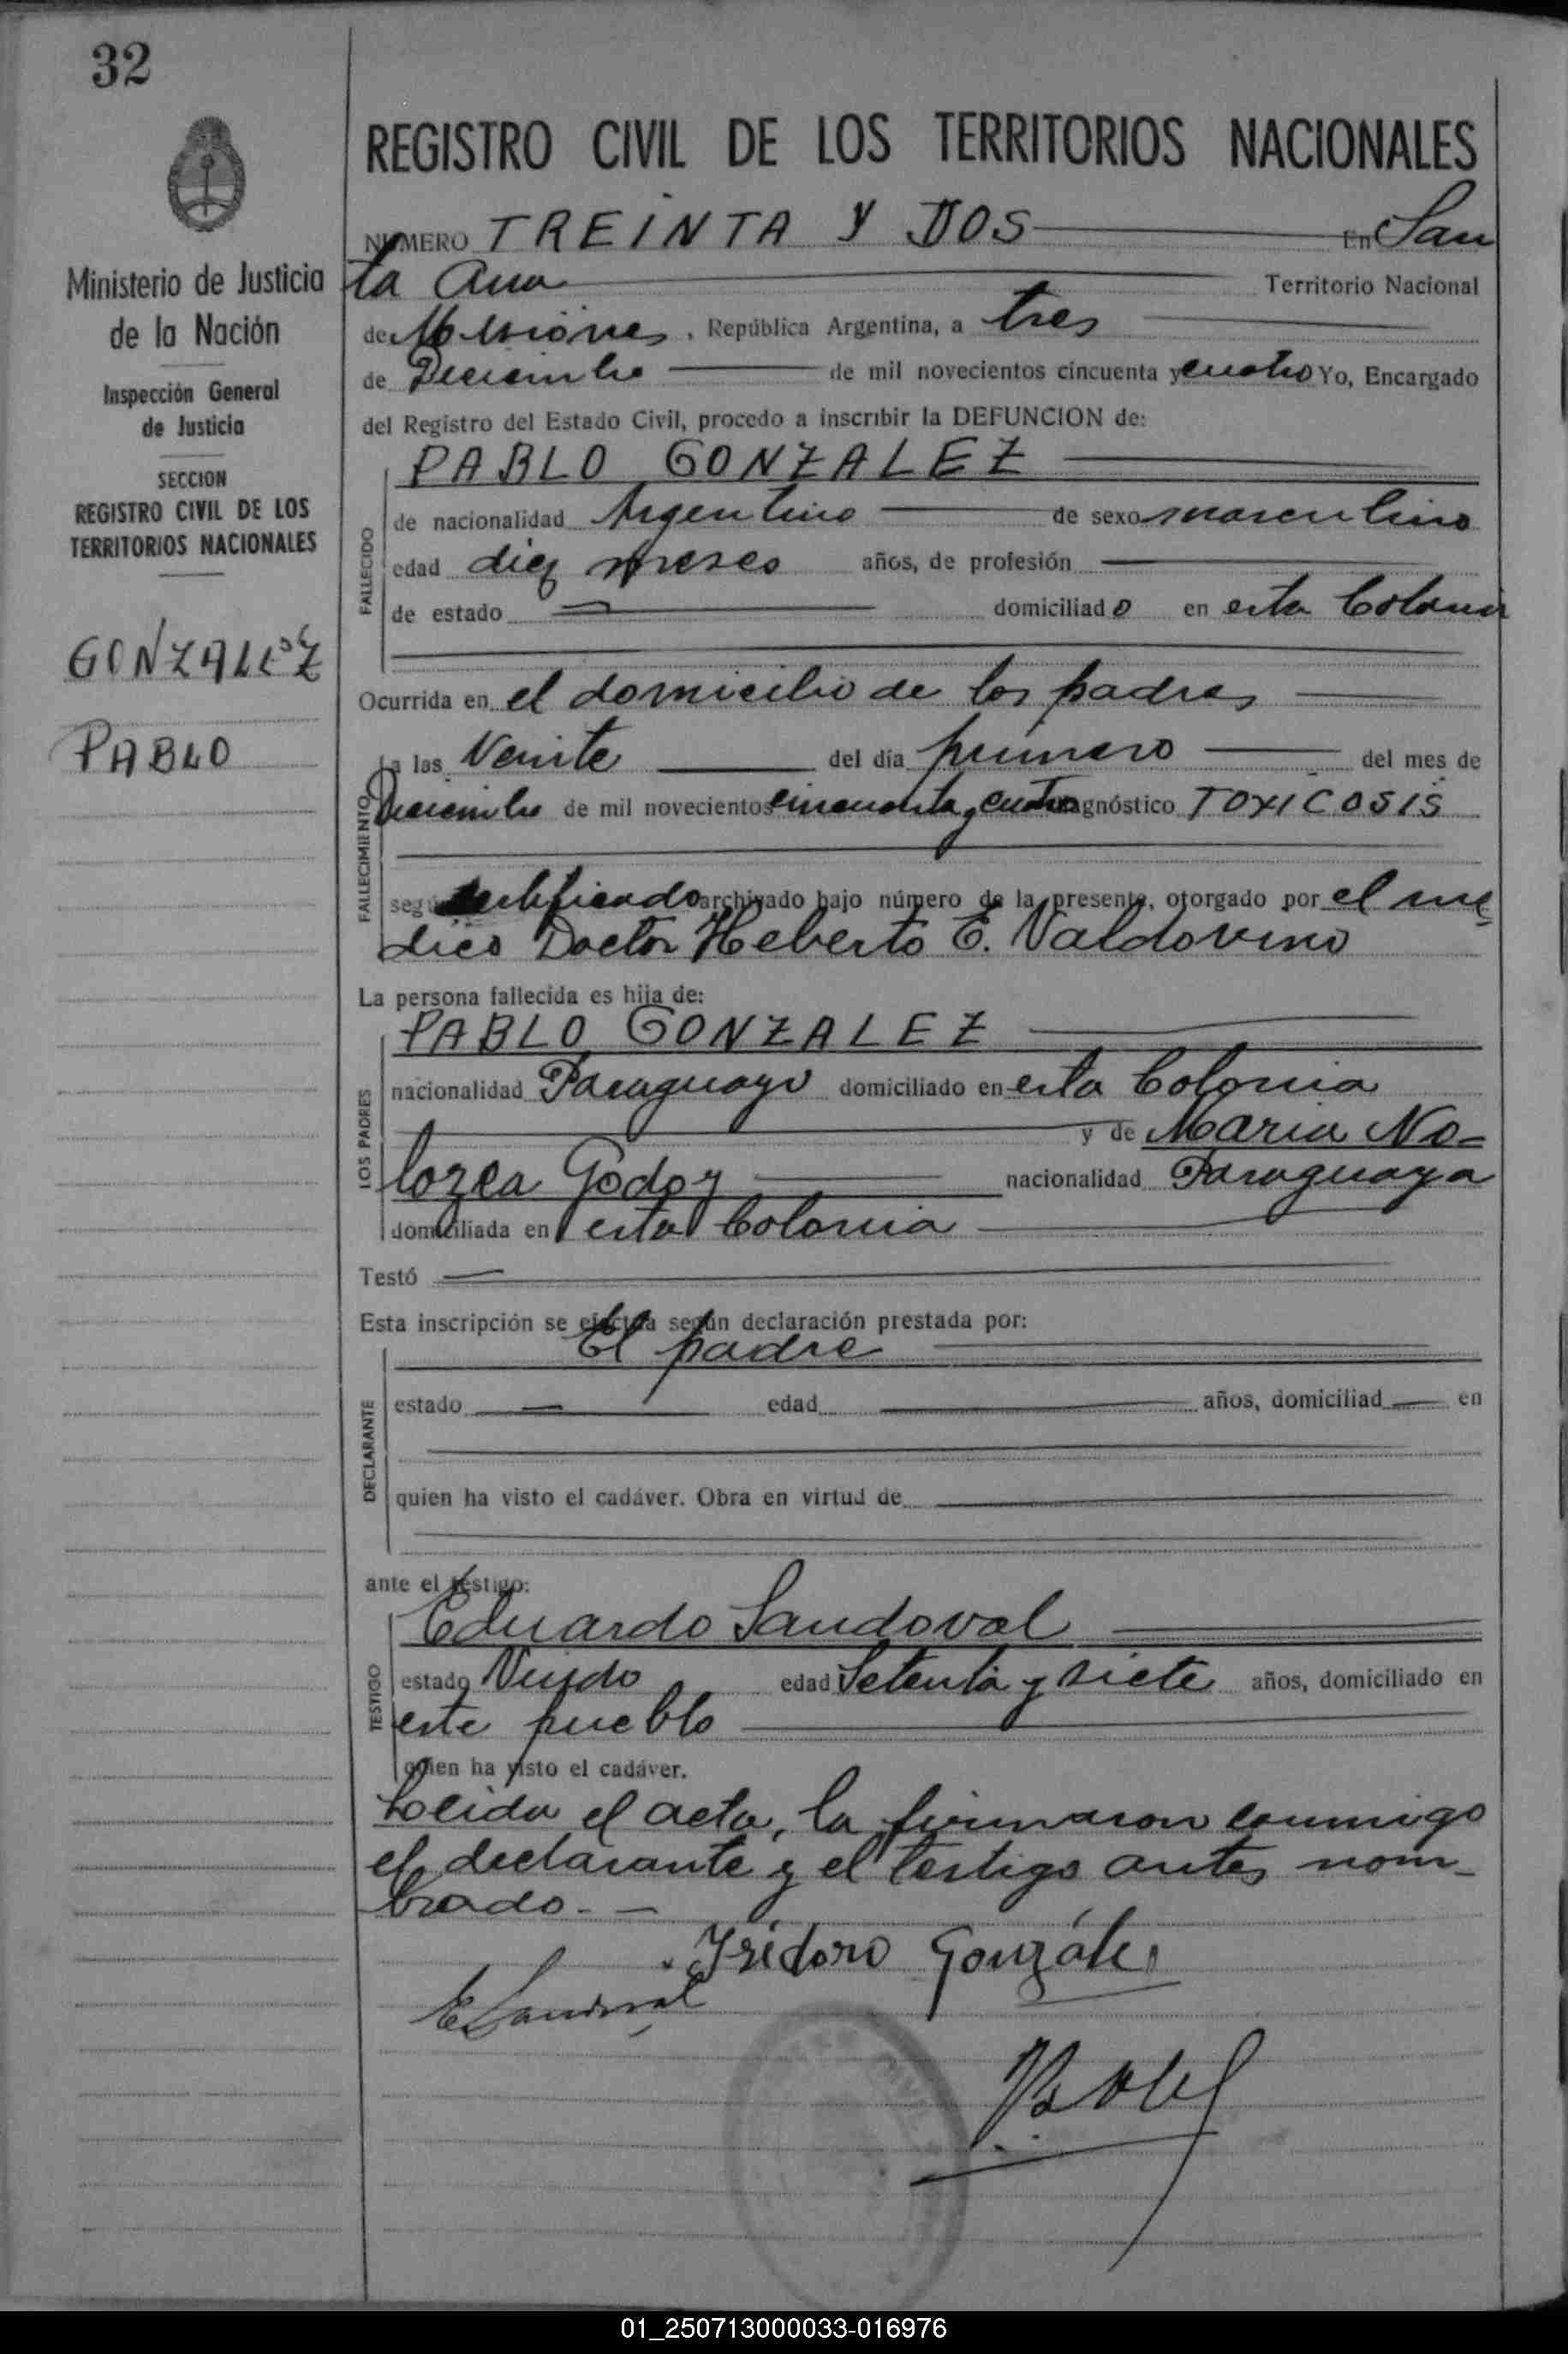 32
REGISTRO CIVIL DE LOS TERRITORIOS NACIONALES
Ministerio de Justicia
de la Nación
Inspección General
de Justicia
SECCION
REGISTRO CIVIL DE LOS
TERRITORIOS NACIONALES
GONZALEZ
PABLO
NUMERO TREINTA Y DOS En San
ta Ana Territorio Nacional
de Misiones, República Argentina, a tres
de Diciembre de mil novecientos cincuenta y cuatro Yo, Encargado
del Registro del Estado Civil, procedo a inscribir la DEFUNCION de:
PABLO GONZALEZ
FALLECIDO
de nacionalidad Argentino de sexo masculino
edad diez meses años, de profesión
de estado domiciliado en esta Colonia
Ocurrida en el domicilio de los padres
FALLECIMIENTO
a las Veinte del día primero del mes de
Diciembre de mil novecientos cincuenta y cuatro diagnóstico TOXICOSIS
según certificado archivado bajo número de la presente, otorgado por el mé
dico Doctor Heberto E. Valdovino
La persona fallecida es hija de:
PABLO GONZALEZ
LOS PADRES
nacionalidad Paraguayo domiciliado en esta Colonia
y de Maria No-
lozca Godoy nacionalidad Paraguaya
domiciliada en esta Colonia
Testó
Esta inscripción se efectúa según declaración prestada por:
El padre
DECLARANTE
estado edad años, domiciliad en
quien ha visto el cadáver. Obra en virtud de
ante el testigo:
Eduardo Sandoval
TESTIGO
estado Viudo edad Setenta y siete años, domiciliado en
este pueblo
quien ha visto el cadáver.
Leida el acta, la firmaron conmigo
el declarante y el testigo antes nom-
brado.-
Isidoro Gonzále
E Sandoval
01_250713000033-016976